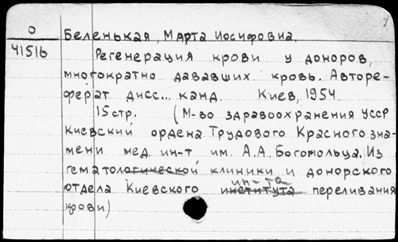 О
41516
Беленькая, Марта Иосифовна.
Регенерация крови у доноров,
многократно дававших кровь. Авторе-
ферат дисс... канд. Киев, 1954
15 стр. (М-во здравоохранения УССР
Киевский ордена Трудового Красного зна-
мени мед. ин-т им. А.А. Богомольца. Из
гематологической клиники и донорского
ин-та
отдела Киевского института переливания
крови)